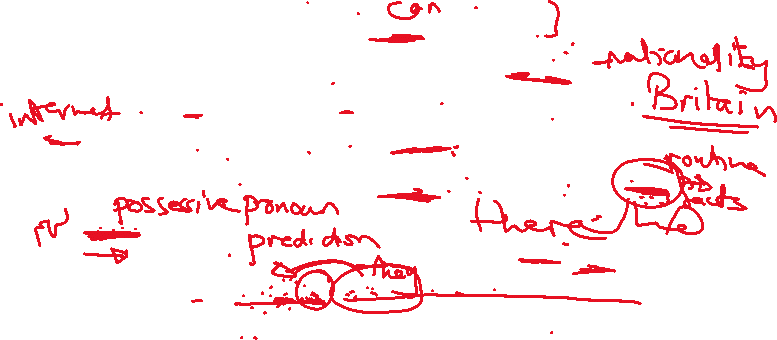 can
nationality
Britain
internet
routine
facts
possessive pronoun
there
prediction
they